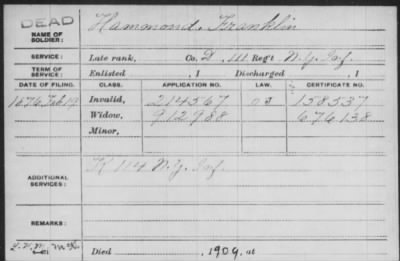 DEAD
Hammond, Franklin
NAME OF SOLDIER:
SERVICE: Late rank, Co. D, 111 Reg't N.Y. Inf.
TERM OF SERVICE: Enlisted , 1 Discharged , 1
DATE OF FILING. CLASS. APPLICATION NO. LAW. CERTIFICATE NO.
1876 Feb 19 Invalid, 214567 158537
Widow, 912988 676138
Minor,
K 114 N.Y. Inf.
ADDITIONAL SERVICES:
REMARKS:
Died , 1909, at